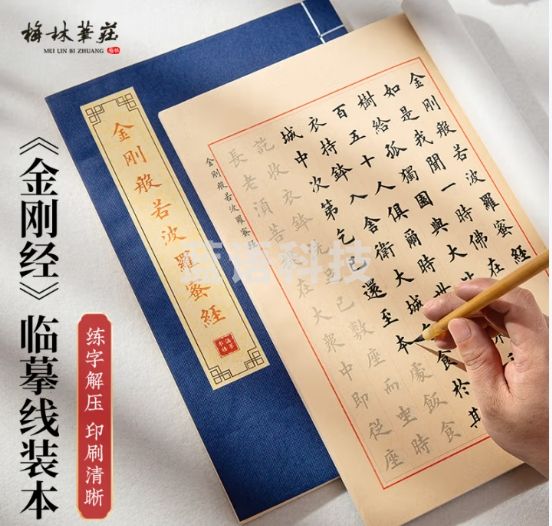 梅林筆莊
MEI LIN BI ZHUANG
《金刚经》临摹线装本
练字解压 印刷清晰
金剛般若波羅蜜經
金剛般若波羅蜜經
如是我聞一時佛在
樹給孤獨園與大
百五十人俱爾時世
衣持鉢入舍衛大城乞食於其
城中次第乞已還至本處飯食
訖收衣鉢 已敷座而坐時
長老須菩 大眾中即從座
金剛般若波羅蜜經
科技